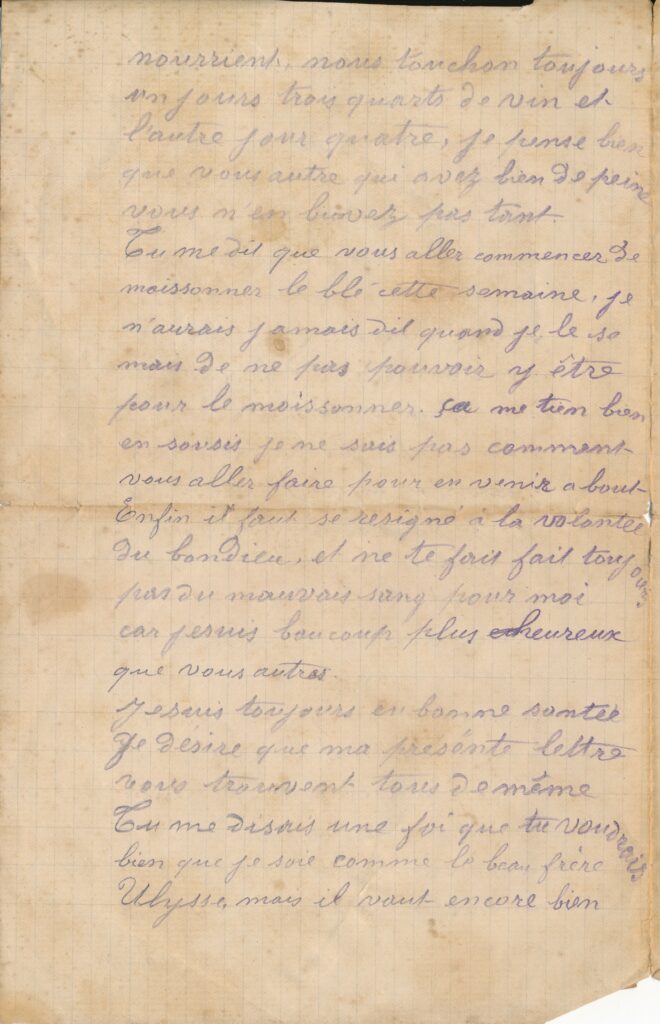 nourrient, nous touchon toujours
un jours trois quarts de vin et
l'autre jour quatre, je pense bien
que vous autre qui avez bien de peine
vous n'en buvez pas tant.
Tu me dit que vous aller commencer de
moissonner le blé cette semaine, je
n'aurais jamais dit quand je le so
mais de ne pas pouvoir y être
pour le moissonner. ça me tien bien
en sousis je ne sais pas comment
vous aller faire pour en venir a bout
Enfin il faut se resigné à la volontée
du bondieu, et ne te fait fait toujours
pas du mauvais sang pour moi
car jesuis baucoup plus heureux
que vous autres.
Je suis toujours en bonne santée
Je désire que ma présénte lettre
vous trouvent tous de même
Tu me disais une foi que tu voudrais
bien que je soie comme le beau frère
Ulysse, mais il vaut encore bien